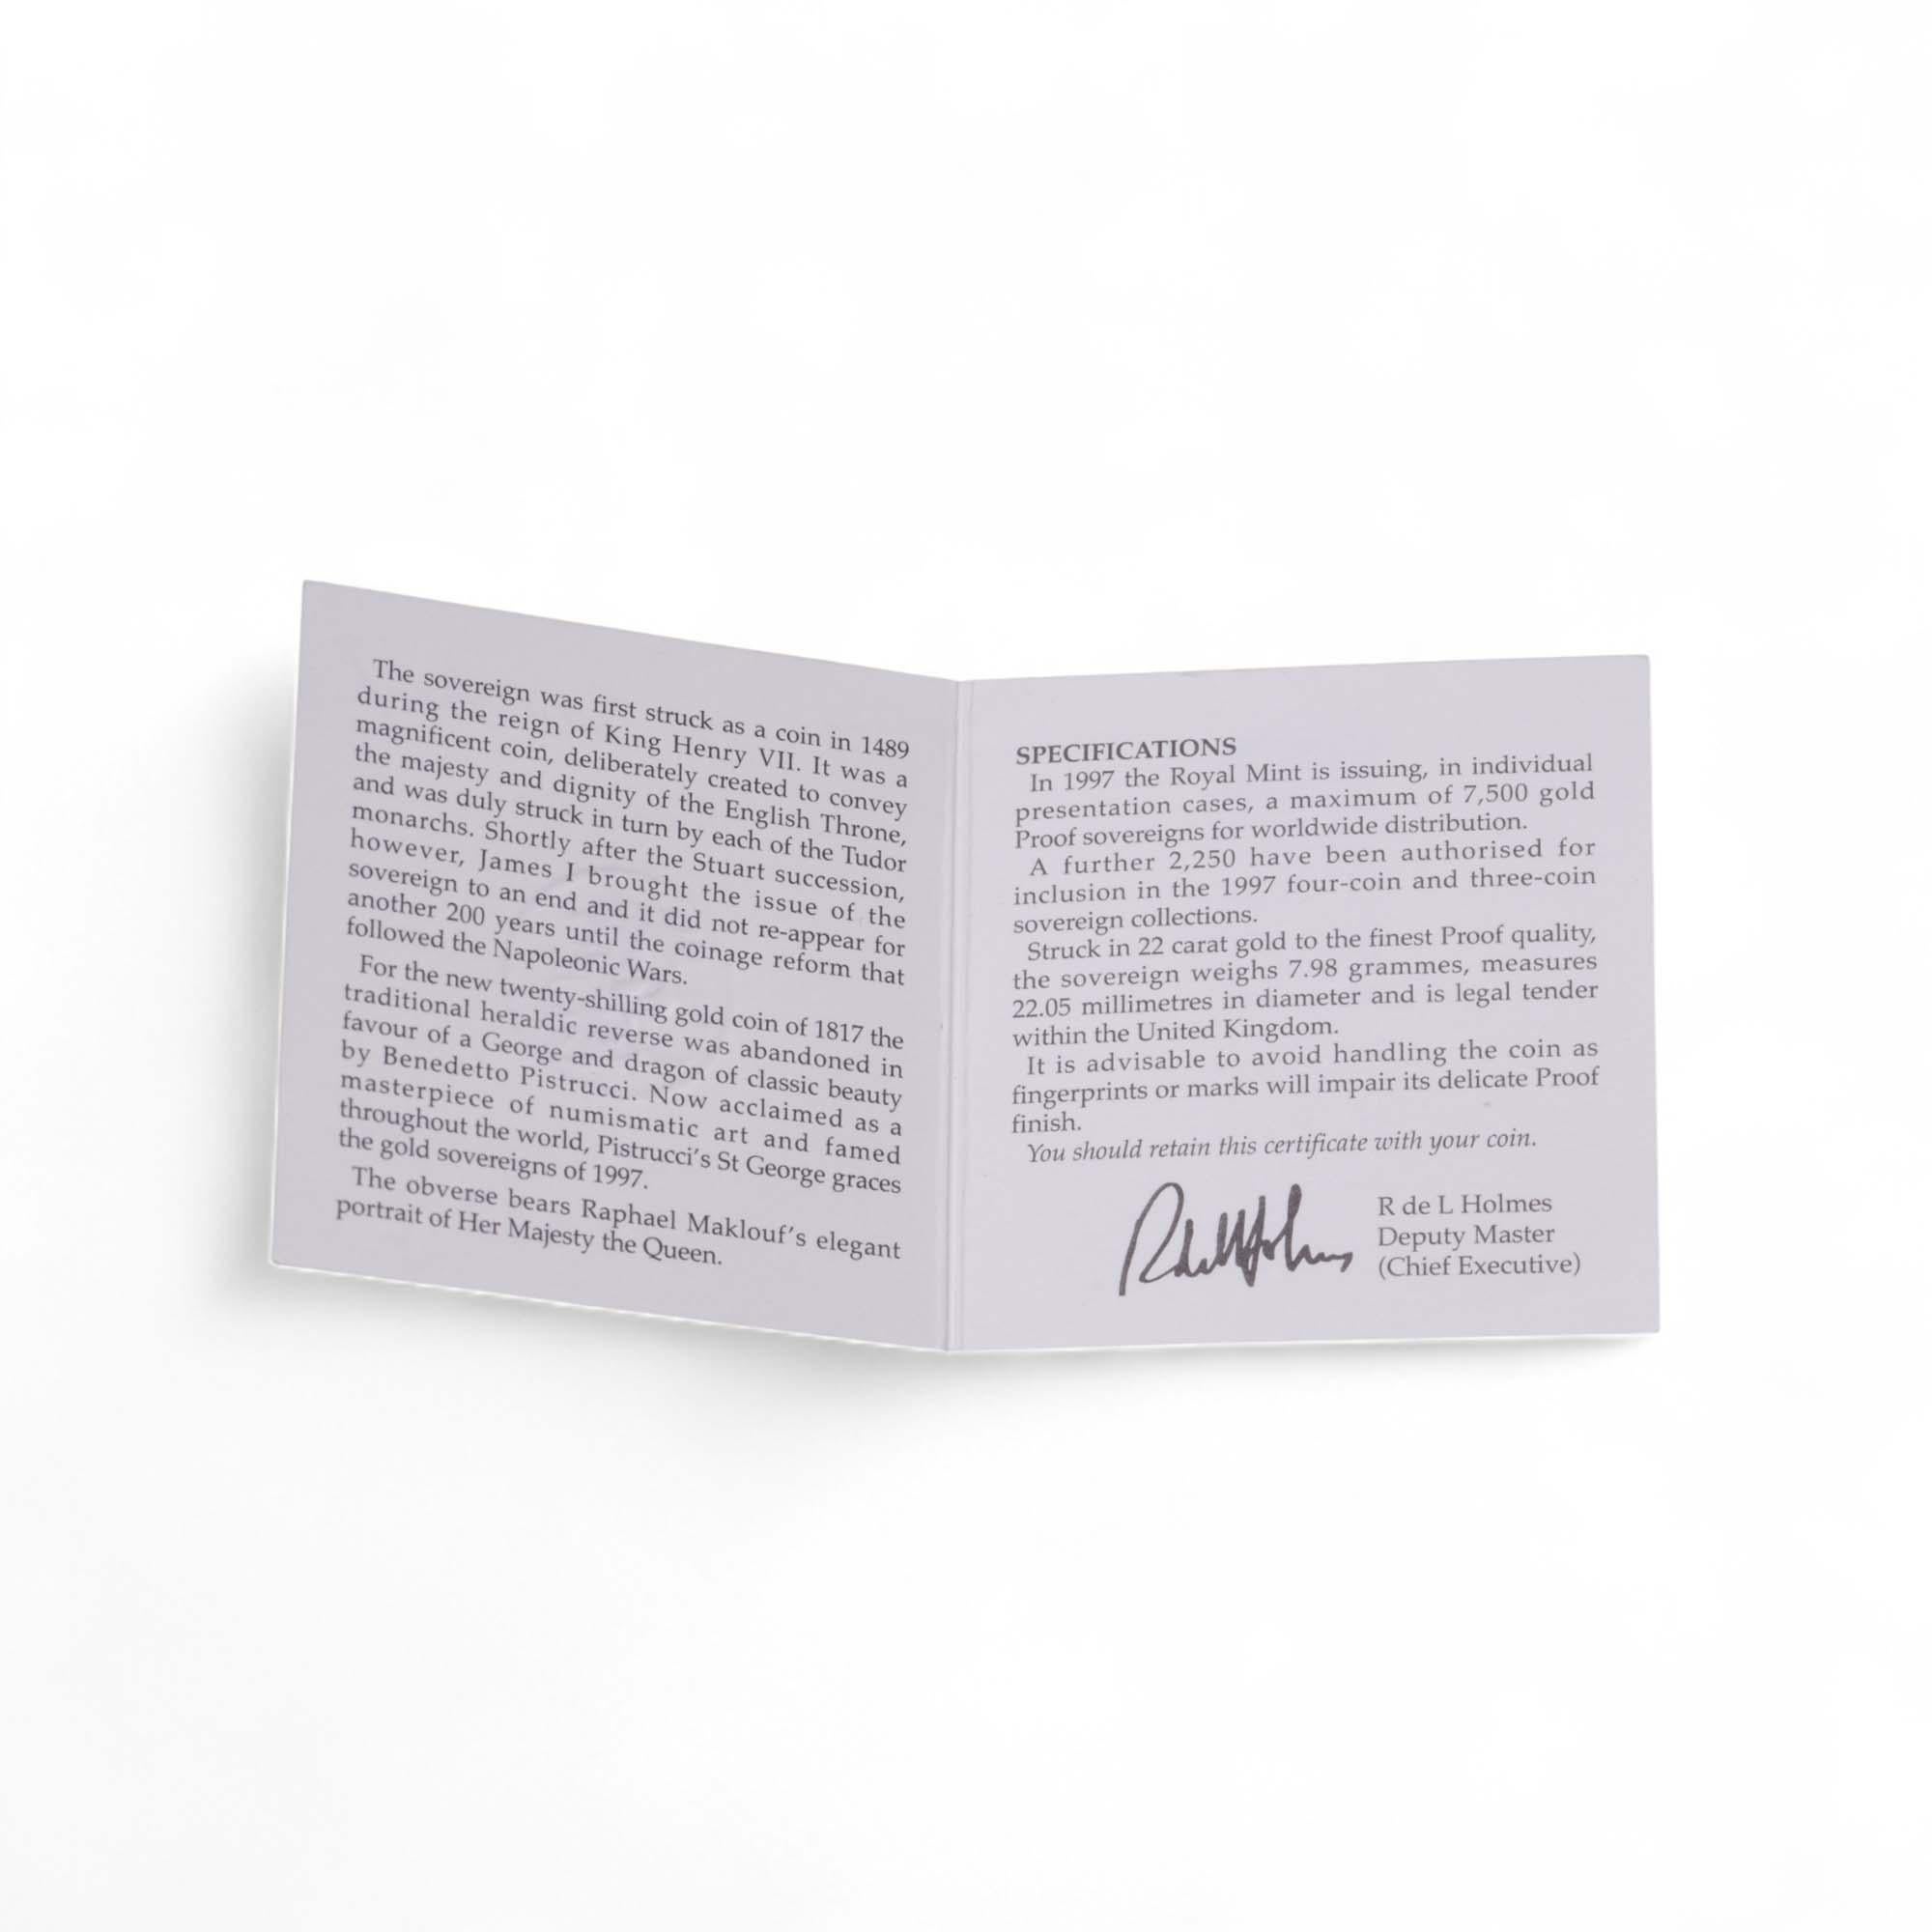 The sovereign was first struck as a coin in 1489
during the reign of King Henry VII. It was a
magnificent coin, deliberately created to convey
the majesty and dignity of the English Throne,
and was duly struck in turn by each of the Tudor
monarchs. Shortly after the Stuart succession,
however, James I brought the issue of the
sovereign to an end and it did not re-appear for
another 200 years until the coinage reform that
followed the Napoleonic Wars.
For the new twenty-shilling gold coin of 1817 the
traditional heraldic reverse was abandoned in
favour of a George and dragon of classic beauty
by Benedetto Pistrucci. Now acclaimed as a
masterpiece of numismatic art and famed
throughout the world, Pistrucci's St George graces
the gold sovereigns of 1997.
The obverse bears Raphael Maklouf's elegant
portrait of Her Majesty the Queen.
SPECIFICATIONS
In 1997 the Royal Mint is issuing, in individual
presentation cases, a maximum of 7,500 gold
Proof sovereigns for worldwide distribution.
A further 2,250 have been authorised for
inclusion in the 1997 four-coin and three-coin
sovereign collections.
Struck in 22 carat gold to the finest Proof quality,
the sovereign weighs 7.98 grammes, measures
22.05 millimetres in diameter and is legal tender
within the United Kingdom.
It is advisable to avoid handling the coin as
fingerprints or marks will impair its delicate Proof
finish.
You should retain this certificate with your coin.
RdeLHolmes
R de L Holmes
Deputy Master
(Chief Executive)